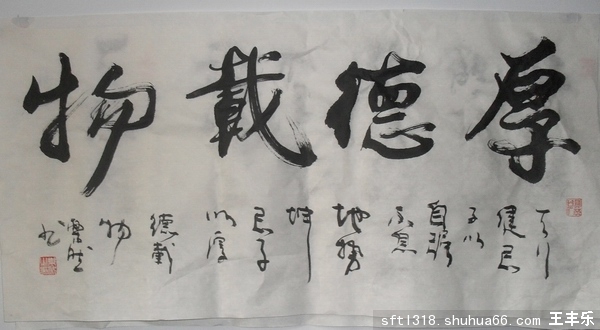 厚德載物
天行
健君
子以
自強
不息
地勢
坤
君子
以厚
德載
物
書
sftl318.shuhua66.com 王丰乐